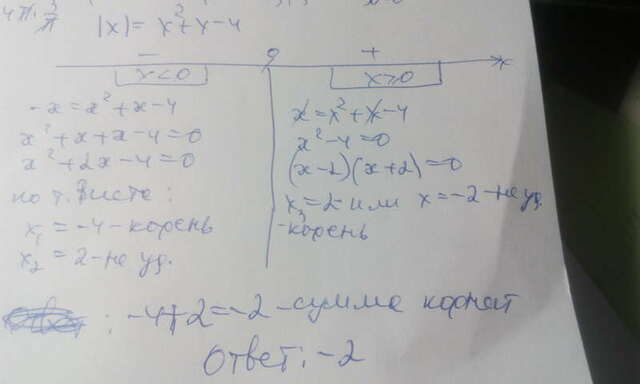 |x| = x² + x - 4
- 0 + x
x < 0
x ≥ 0
-x = x² + x - 4
x² + x + x - 4 = 0
x² + 2x - 4 = 0
по т. Виета:
x₁ = -4 - корень
x₂ = 2 - не уд.
x = x² + x - 4
x² - 4 = 0
(x - 2)(x + 2) = 0
x₃ = 2 - или x = -2 - не уд.
- корень
: -4 + 2 = -2 - сумма корней
Ответ: -2